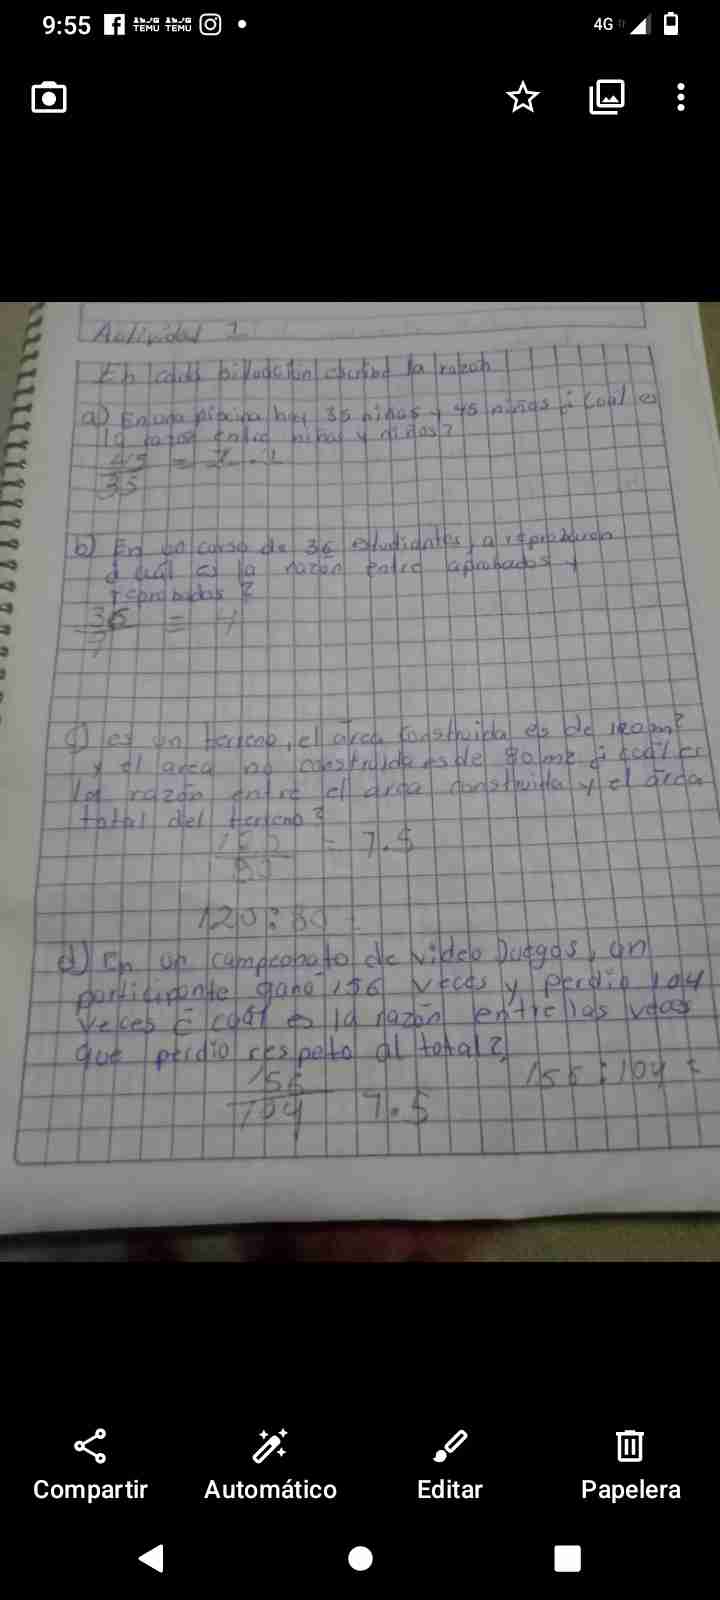 9:55
TEMU TEMU
4G
Actividad 1
En cada la razon
a) En una piscina hay 35 niños y 45 niñas ¿Cuál es
la razon entre niñas y niños?
45
35
b) En un curso de 36 estudiantes, a
¿ cuál es la razon entre aprobados y
?
36
7
es un terreno, el area construida es de
y el area no construida es de 80 m2 ¿ cuál es
la razón entre el area construida y el area
total del terreno?
= 7.5
120:80
d) En un campeonato de video Juegos, un
participante gano 156 veces y perdio 104
veces ¿ cuál es la razón entre las veces
que perdio respeto al total?
156 156:104 =
104 7.5
Compartir
Automático
Editar
Papelera